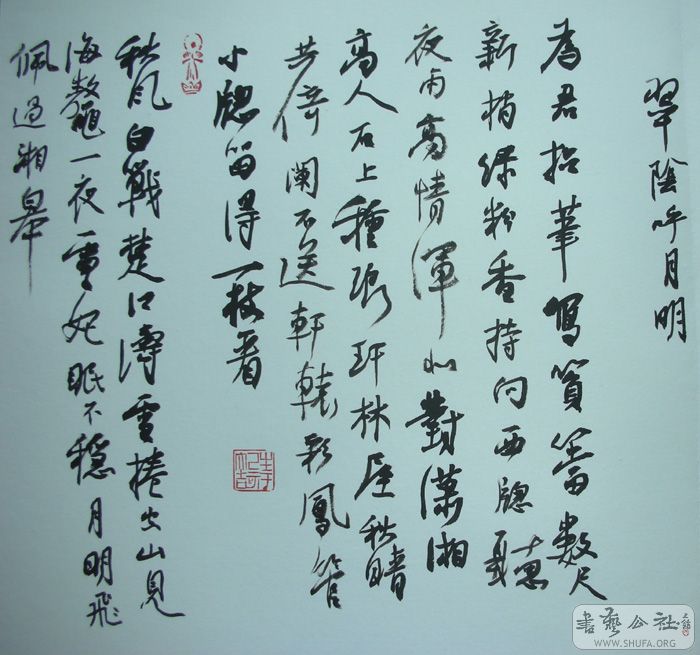 翠陰呼月明
為君拈筆寫篔簹數尺
新梢綠粉香持向西牕聽
夜雨高情渾對瀟湘
高人石上種琅玕林屋秋晴
共倚闌不送軒轅彩鳳管
小牕留得一枝看
秋風白戰楚江濤雪捲出山見
海鼇一夜靈妃眠不穩月明飛
佩過湘皋
書藝公社
WWW.SHUFA.ORG